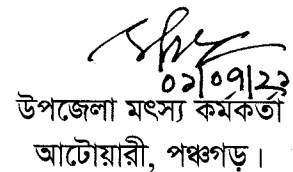 ০১/০৭/২১
উপজেলা মৎস্য কর্মকর্তা
আটোয়ারী, পঞ্চগড়।